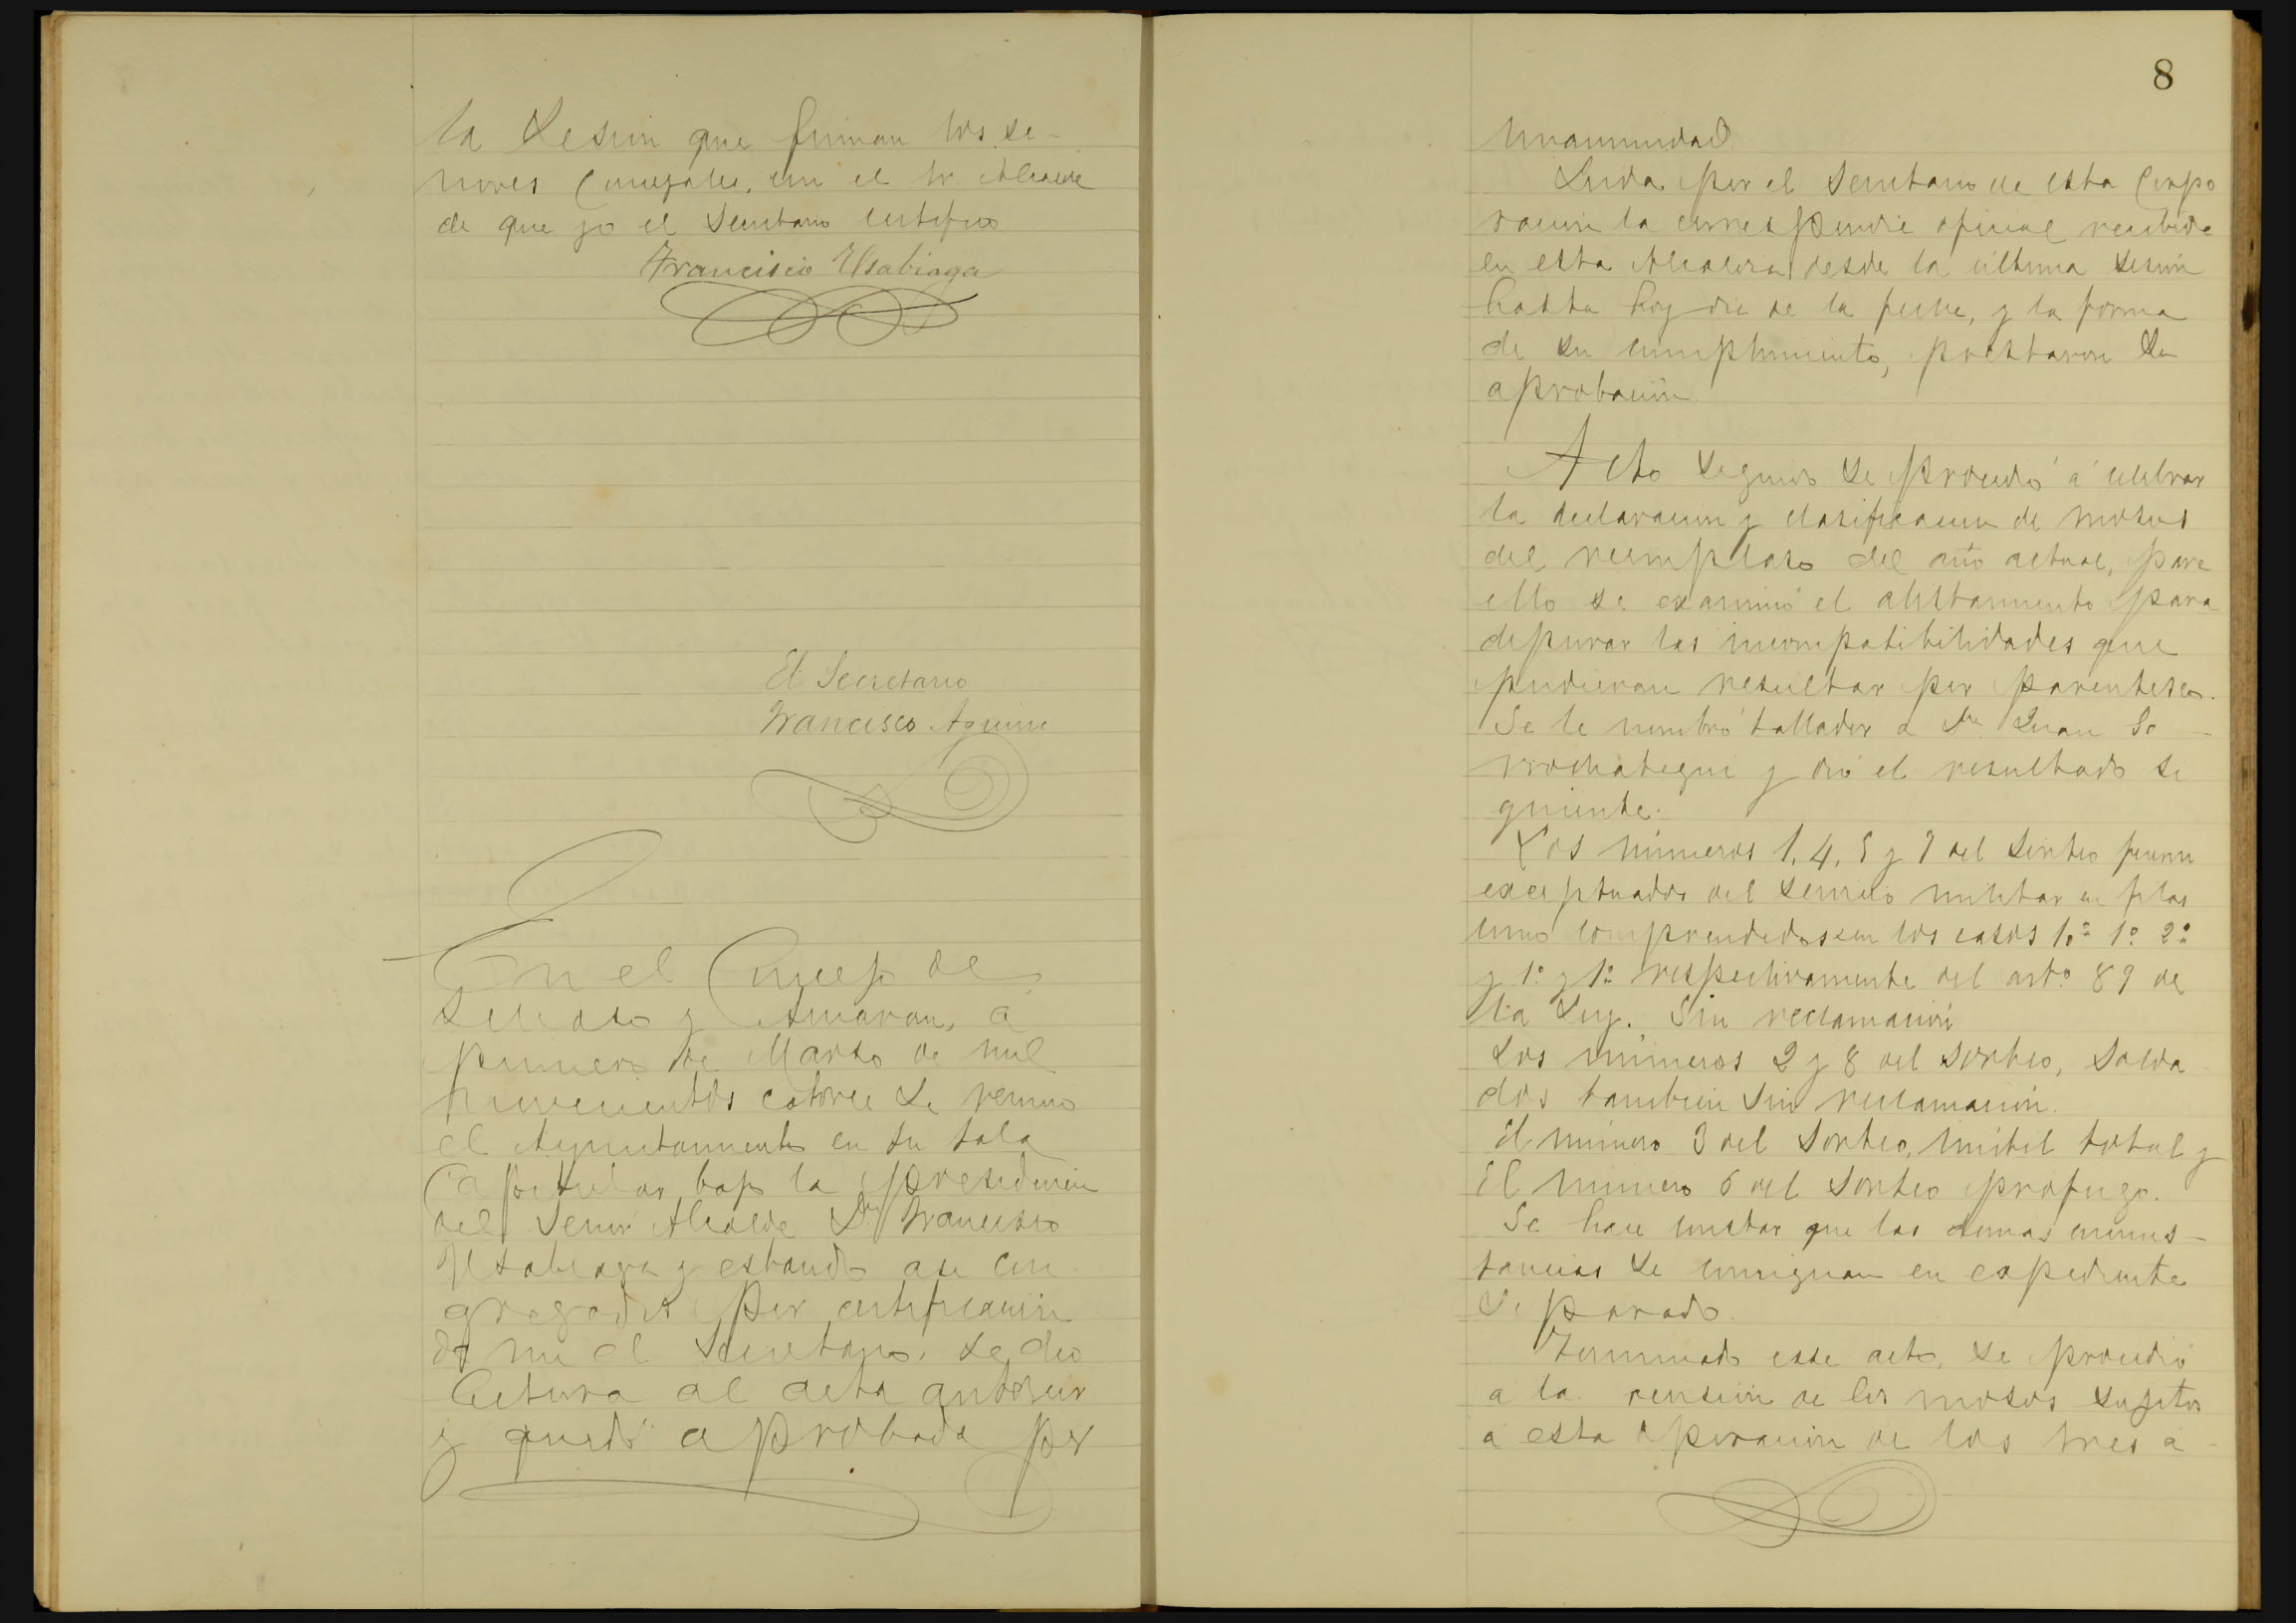 la Sesion que firman los se-
ñores Concejales, con el Sr. Alcalde
de que yo el Secretario certifico
Francisco Usabiaga
El Secretario
Francisco Aguirre
En el Concejo de
y Amaran, a
primero de Marso de mil
novecientos catorce se reunio
el Ayuntamiento en su sala
Capitular bajo la presidencia
del Señor Alcalde Dn Francisco
Usabiaga y estando asi con
gregados por certificación
de mi el Secretario, se dio
lectura al acta anterior
y quedó aprobada por
8
Unanimidad.
Leida por el Secretario de esta Corpo
racion la correspondie oficial recibida
en esta Alcaldia desde la ultima sesión
hasta hoy dia de la feche, y la forma
de su cumplimiento, prestaron su
aprobación.
Acto seguido se procedió á celebrar
la declaracion y clasificacion de mosos
del reemplaso del año actual, para
ello se examinó el alistamiento para
depurar las incompatibilidades que
pudieran resultar por parentesco.
Se le nombró tallador a Dn Juan So
rrochategui y dió el resultado si
guiente:
Los números 1, 4, 5 y 7 del Sorteo fueron
exceptuados del servicio militar en filas
como comprendidos en los casos 1º 1º 2º
y 1º y 1º respectivamente del artº 89 de
la Ley. Sin reclamación
Los números 2 y 8 del sorteo, solda
dos tambien sin reclamación.
El número 3 del Sorteo, inútil total y
El número 6 del Sorteo profugo.
Se hace constar que las demas circuns-
tancias se consignan en expediente
separado.
Terminado este acto, se procedió
a la revisión de los mosos sujetos
á esta operación de los tres a-